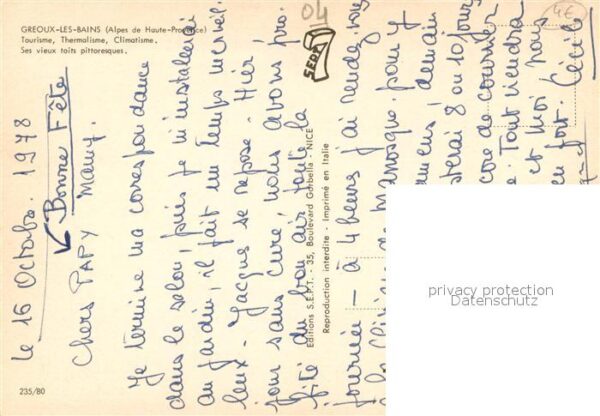 GREOUX-LES-BAINS (Alpes de Haute-Provence)
Tourisme, Thermalisme, Climatisme.
Ses vieux toits pittoresques.
04
4€
SEPT
le 16 Octobre. 1978
Bonne Fête
Chers PAPY Mamy.
Je termine ma correspondance
dans le salon, puis je m'installerai
au jardin, il fait un temps merveil-
leux. Jacques se repose. Hier,
jour sans cure, nous avons pro-
fité du bon air toute la
journée - à 4 heures j'ai rendez vous
Manosque. pour y
demain
8 ou 10 jours
core de courrier
e. Tout viendra
et moi vous
en fort. Cécile
Editions S.E.P.T. - 35, Boulevard Gorbella - NICE
Reproduction interdite - Imprimé en Italie
235/80
privacy protection
Datenschutz